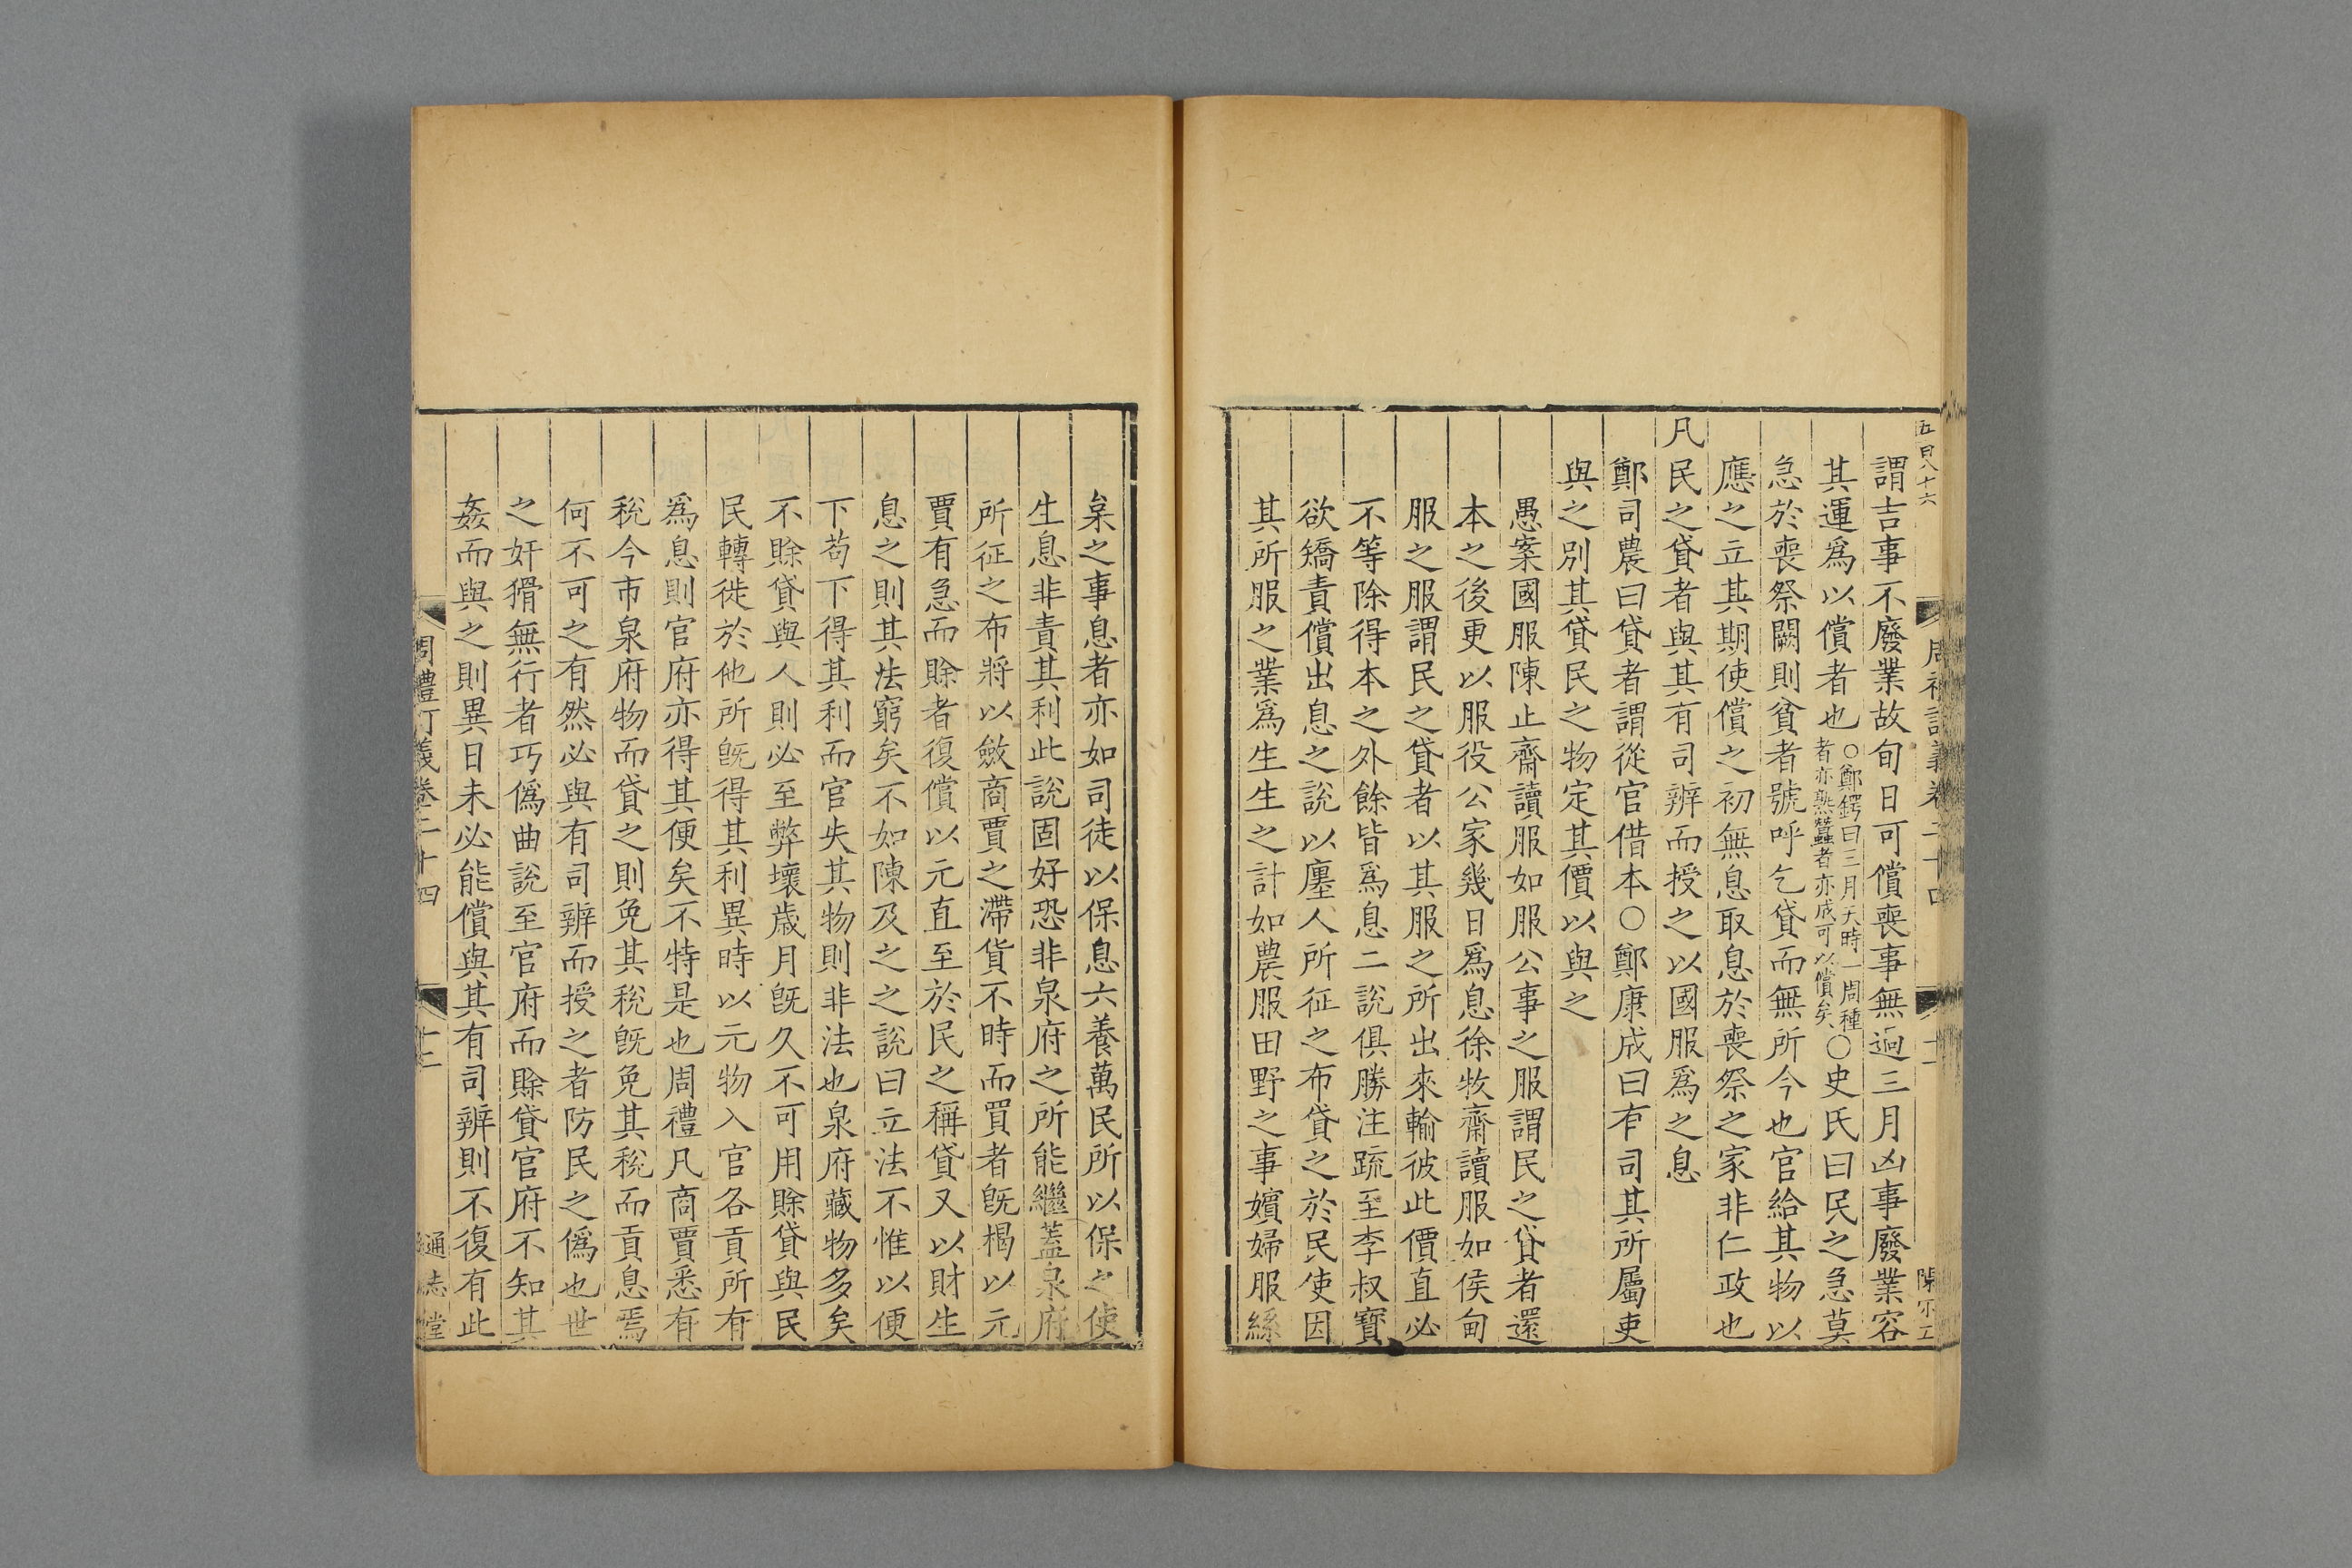 五百八十六
周禮訂義卷二十四
十一
謂吉事不廢業故旬日可償喪事無逈三月凶事廢業容
其運爲以償者也○鄭鍔曰三月天時一周種
者亦熟蠶者亦成可以償矣○史氏曰民之急莫
急於喪祭闕則貧者號呼乞貸而無所今也官給其物以
應之立其期使償之初無息取息於喪祭之家非仁政也
凡民之貸者與其有司辨而授之以國服爲之息
鄭司農曰貸者謂從官借本○鄭康成曰有司其所屬吏
與之別其貸民之物定其價以與之
愚案國服陳止齋讀服如服公事之服謂民之貸者還
本之後更以服役公家幾日爲息徐牧齋讀服如侯甸
服之服謂民之貸者以其服之所出來輸彼此價直必
不等除得本之外餘皆爲息二說俱勝注䟽至李叔寶
欲矯責償出息之說以廛人所征之布貸之於民使因
其所服之業爲生生之計如農服田野之事嬪婦服絲
枲之事息者亦如司徒以保息六養萬民所以保之使
生息非責其利此說固好恐非泉府之所能繼蓋泉府
所征之布將以斂商賈之滯貨不時而買者旣楬以元
賈有急而賖者復償以元直至於民之稱貸又以財生
息之則其法窮矣不如陳及之之說曰立法不惟以便
下苟下得其利而官失其物則非法也泉府藏物多矣
不賖貸與人則必至弊壞歲月旣久不可用賖貸與民
民轉徙於他所旣得其利異時以元物入官各貢所有
爲息則官府亦得其便矣不特是也周禮凡商賈悉有
稅今市泉府物而貸之則免其稅旣免其稅而貢息焉
何不可之有然必與有司辨而授之者防民之僞也世
之奸猾無行者巧僞曲說至官府而賖貸官府不知其
姦而與之則異日未必能償與其有司辨則不復有此
周禮訂義卷二十四
十二
通志堂